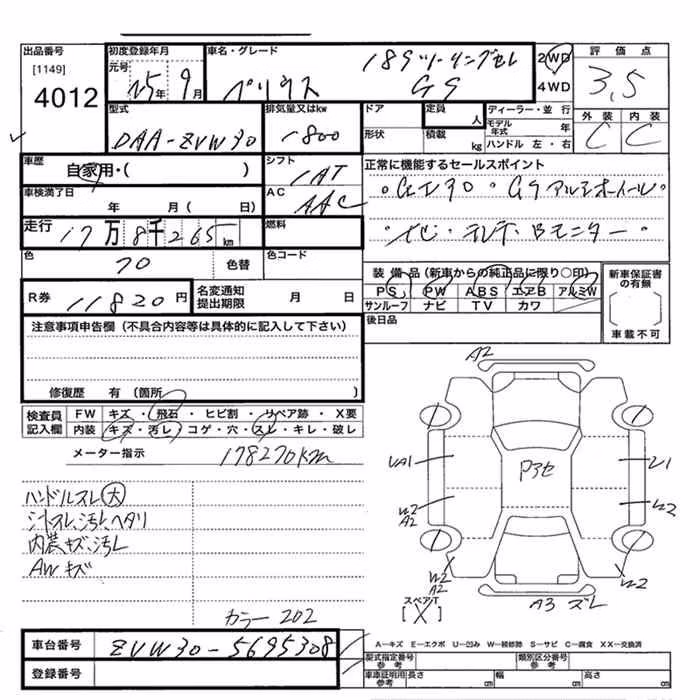 出品番号
[1149]
4012
初度登録年月
元号
25年 9月
車名・グレード
プリウス
1.8Sツーリングセレ
GS
2WD
4WD
評価点
3.5
型式
DAA-ZVW30
排気量又はkw
1800
ドア
形状
定員
人
積載
kg
ディーラー・並行
モデル年式 年
ハンドル 左・右
外装 内装
C C
車歴
自家用・( )
シフト
IAT
AC
AAC
正常に機能するセールスポイント
車検満了日
年 月( 日)
走行
17万8千265km
燃料
・GSアルミホイール・
ナビ・テレビ・Bモニター・
色
70
色替
色コード
装備品(新車からの純正品に限り○印)
PS PW ABS エアB アルミW
サンルーフ ナビ TV カワ
新車保証書の有無
車載不可
R券
11820円
名変通知
提出期限
月 日
後日品
注意事項申告欄(不具合内容等は具体的に記入して下さい)
修復歴 有(箇所 )
検査員
記入欄
FW キズ・飛石・ヒビ割・リペア跡・X要
内装 キズ・汚レ・コゲ・穴・スレ・キレ・破レ
メーター指示
178270km
ハンドルスレ(大)
シートスレ、汚レ、ヘタリ
内農キズ、汚レ
AWキズ
A2
UA1
P3セ
U1
W2
A2
W2
W2
A2
W2
A3 ズレ
スペアT
[X]
カラー 202
車台番号
ZVW30-5695308
登録番号
A-キズ E-エクボ U-凹み W-補修跡 S-サビ C-腐食 XX-交換済
型式指定番号
参考
類別区分番号
参考
車庫証明用
参考
長さ cm 幅 cm 高さ cm